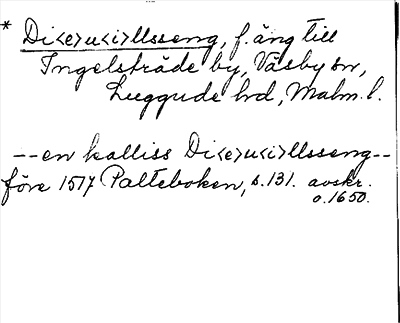 * Di<e>u<i>llsseng, f. äng till
Ingelsträde by, Väsby sn,
Luggude hd, Malm. l.
--en kalliss Di<e>u<i>llsseng--
före 1517 Palteboken, s. 131. avskr.
o. 1650.